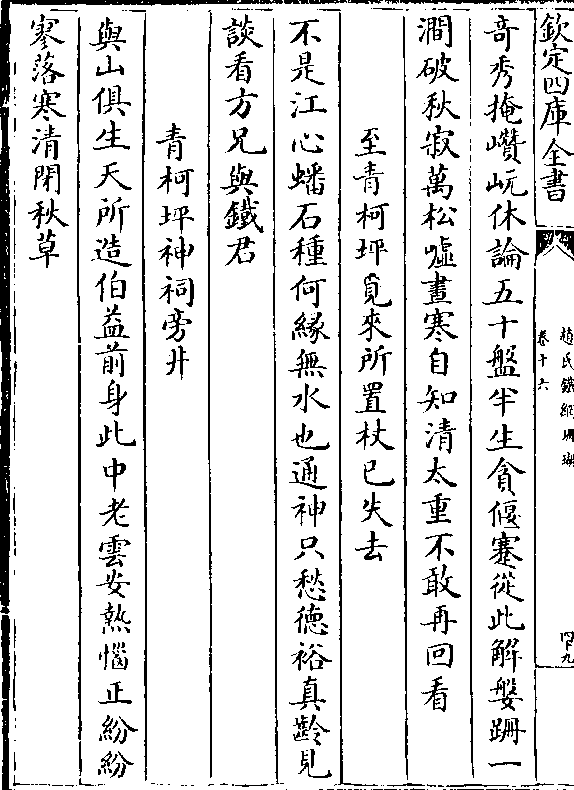 欽定四庫全書
趙氏鐵網珊瑚
卷十六
四十九
奇秀掩巑岏休論五十盤半生貪偃蹇從此解媻跚一
澗破秋寂萬松嘘晝寒自知清太重不敢再回看
至青柯坪覓來所置杖已失去
不是江心蟠石種何緣無水也通神只愁德裕真齡見
談看方兄與鐵君
青柯坪神祠旁井
與山俱生天所造伯益前身此中老雲安熱惱正紛紛
寥落寒清閉秋草